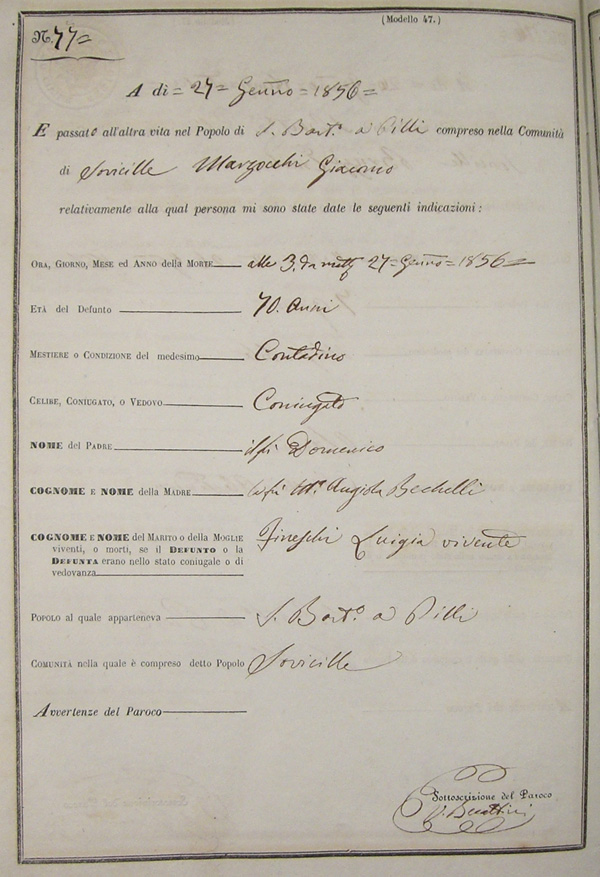 (Modello 47.)
N. 77=
A dì = 27 = Genno = 1856 =
E passato all'altra vita nel Popolo di S. Barto. a Pilli compreso nella Comunità
di Sovicille Margocchi Giacomo
relativamente alla qual persona mi sono state date le seguenti indicazioni:
Ora, Giorno, Mese ed Anno della Morte alle 3. da mezz 27 = Genno = 1856 =
Età del Defunto 70. Anni
Mestiere o Condizione del medesimo Contadino
Celibe, Coniugato, o Vedovo Coniugato
NOME del Padre il fù Domenico
COGNOME E NOME della Madre la fù Ma. Angiola Bechelli
COGNOME E NOME del Marito o della Moglie Fineschi Luigia vivente
viventi, o morti, se il Defunto o la
Defunta erano nello stato coniugale o di
vedovanza
Popolo al quale apparteneva S. Barto. a Pilli
Comunità nella quale è compreso detto Popolo Sovicille
Avvertenze del Paroco
Sottoscrizione del Paroco